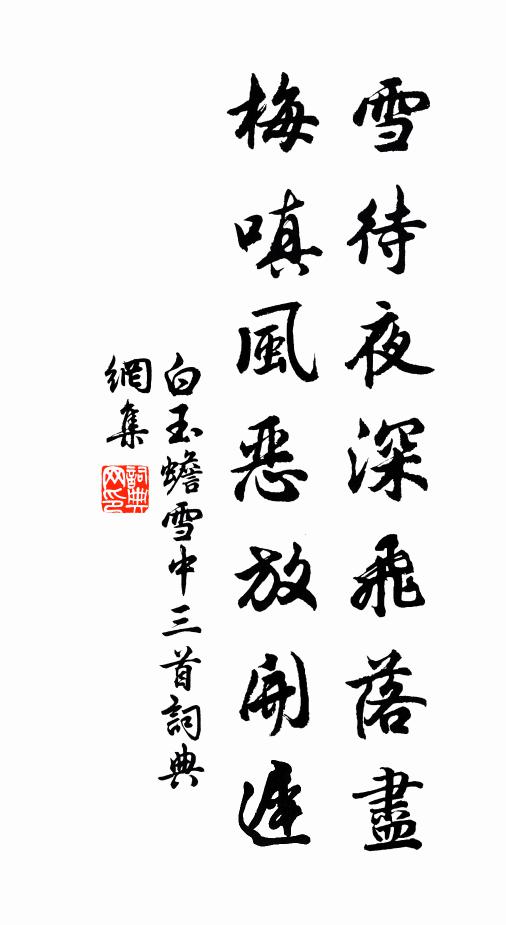 雪待夜深飛落盡
梅嗔風惡放開遲
白玉蟾雪中三首詞典
網集
詞典網印